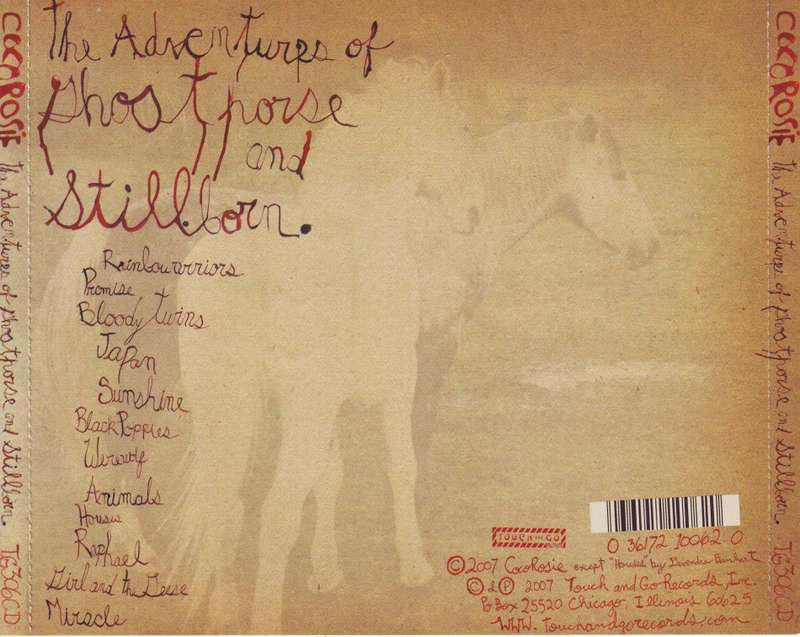 COCOROSIE The Adventures of Ghosthorse and Stillborn. TG306CD
The Adventures of
Ghosthorse
and
Stillborn.
Rainbowarriors
Promise
Bloody Twins
Japan
Sunshine
Black Poppies
Werewolf
Animals
Houses
Raphael
Girl and the Geese
Miracle
TOUCH AND GO
0 36172 10062 0
©2007 CocoRosie except "Houses" by Devendra Banhart
© & ℗ 2007 Touch and Go Records, Inc.
Po Box 25520 Chicago, Illinois 60625
WWW.touchandgorecords.com
COCOROSIE The Adventures of Ghosthorse and Stillborn. TG306CD